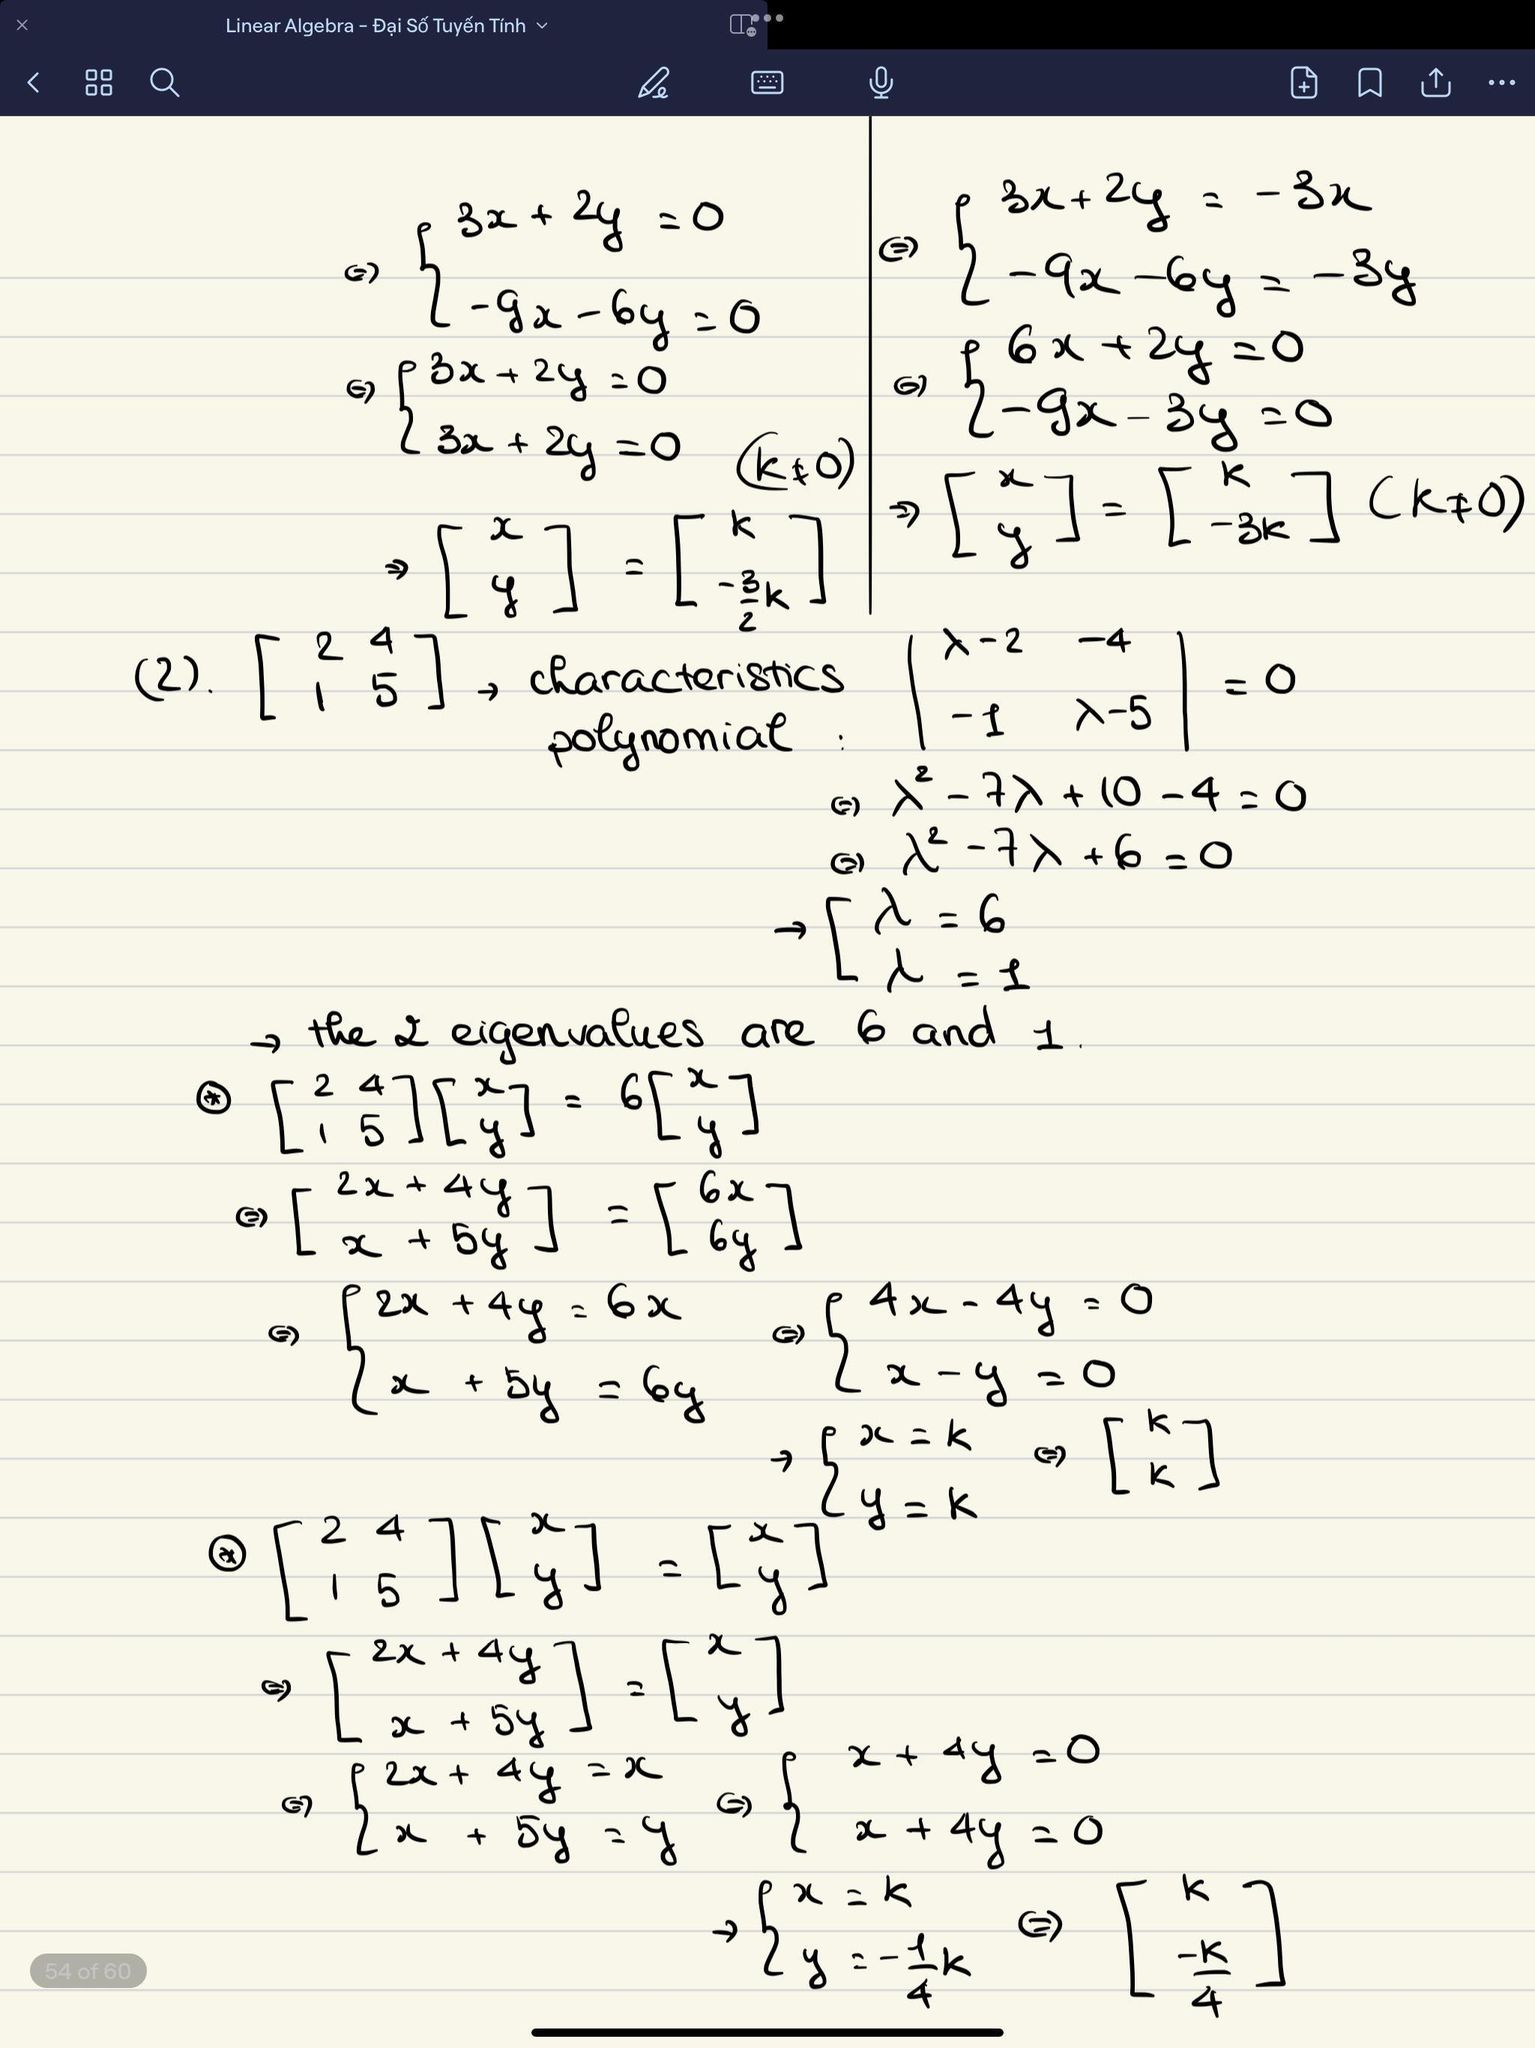 Linear Algebra - Đại Số Tuyến Tính
⇔ { 3x + 2y = 0
-9x - 6y = 0
⇔ { 3x + 2y = 0
3x + 2y = 0 (k ≠ 0)
⇒ [ x y ] = [ k -3/2 k ]
⇔ { 3x + 2y = -3x
-9x - 6y = -3y
⇔ { 6x + 2y = 0
-9x - 3y = 0
⇒ [ x y ] = [ k -3k ] (k ≠ 0)
(2). [ 2 4
1 5 ] → characteristics
polynomial :
| λ-2 -4
-1 λ-5 | = 0
⇔ λ² - 7λ + 10 - 4 = 0
⇔ λ² - 7λ + 6 = 0
→ [ λ = 6
λ = 1
→ the 2 eigenvalues are 6 and 1.
⊛ [ 2 4
1 5 ] [ x y ] = 6 [ x y ]
⇔ [ 2x + 4y
x + 5y ] = [ 6x
6y ]
⇔ { 2x + 4y = 6x
x + 5y = 6y
⇔ { 4x - 4y = 0
x - y = 0
→ { x = k
y = k ⇔ [ k k ]
⊛ [ 2 4
1 5 ] [ x y ] = [ x y ]
⇔ [ 2x + 4y
x + 5y ] = [ x
y ]
⇔ { 2x + 4y = x
x + 5y = y
⇔ { x + 4y = 0
x + 4y = 0
→ { x = k
y = -1/4 k ⇔ [ k -k/4 ]
54 of 60